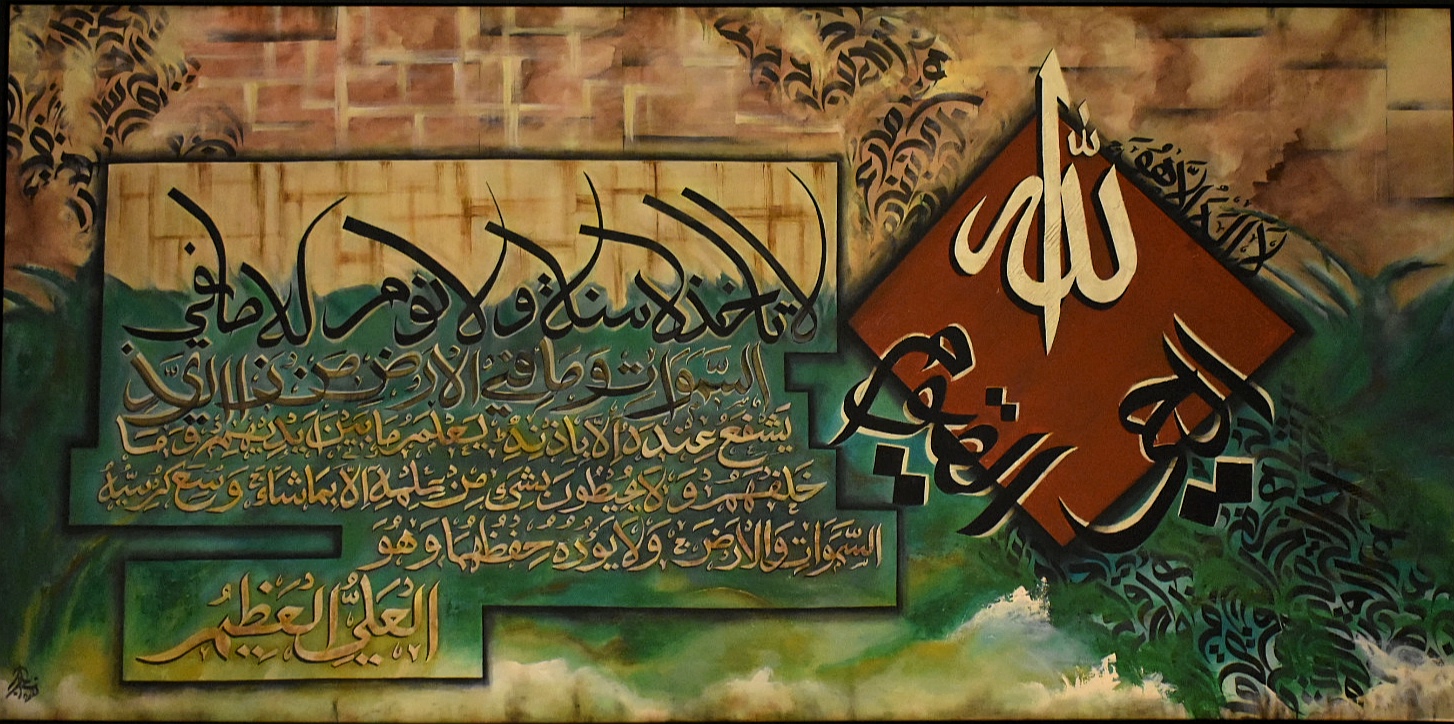 الله
لا اله الا هو
الحي القيوم
لا تاخذه سنة ولا نوم له ما في
السَّمَوَاتِ وَمَا فِي الارض مَن ذا الذي
يَشْفَعُ عِندَهُ الا باذنه يعلم ما بين ايديهم وَمَا
خلفهم وَلا يحيطون بشيء مِن علمه الا بما شاءَ وَسِعَ كرسيّهُ
السَّمَوَاتِ وَالارضَ وَلا يَؤدُهُ حِفظُهُمَا وَهُوَ
العَلِيُّ العَظِيمُ